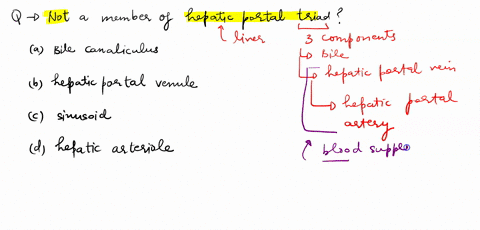 Q → Not a member of hepatic portal triad?
liver
3 components
(a) Bile canaliculus
→ Bile
→ hepatic portal vein
(b) hepatic portal venule
→ hepatic portal
artery
(c) sinusoid
(d) hepatic arteriole
blood supple